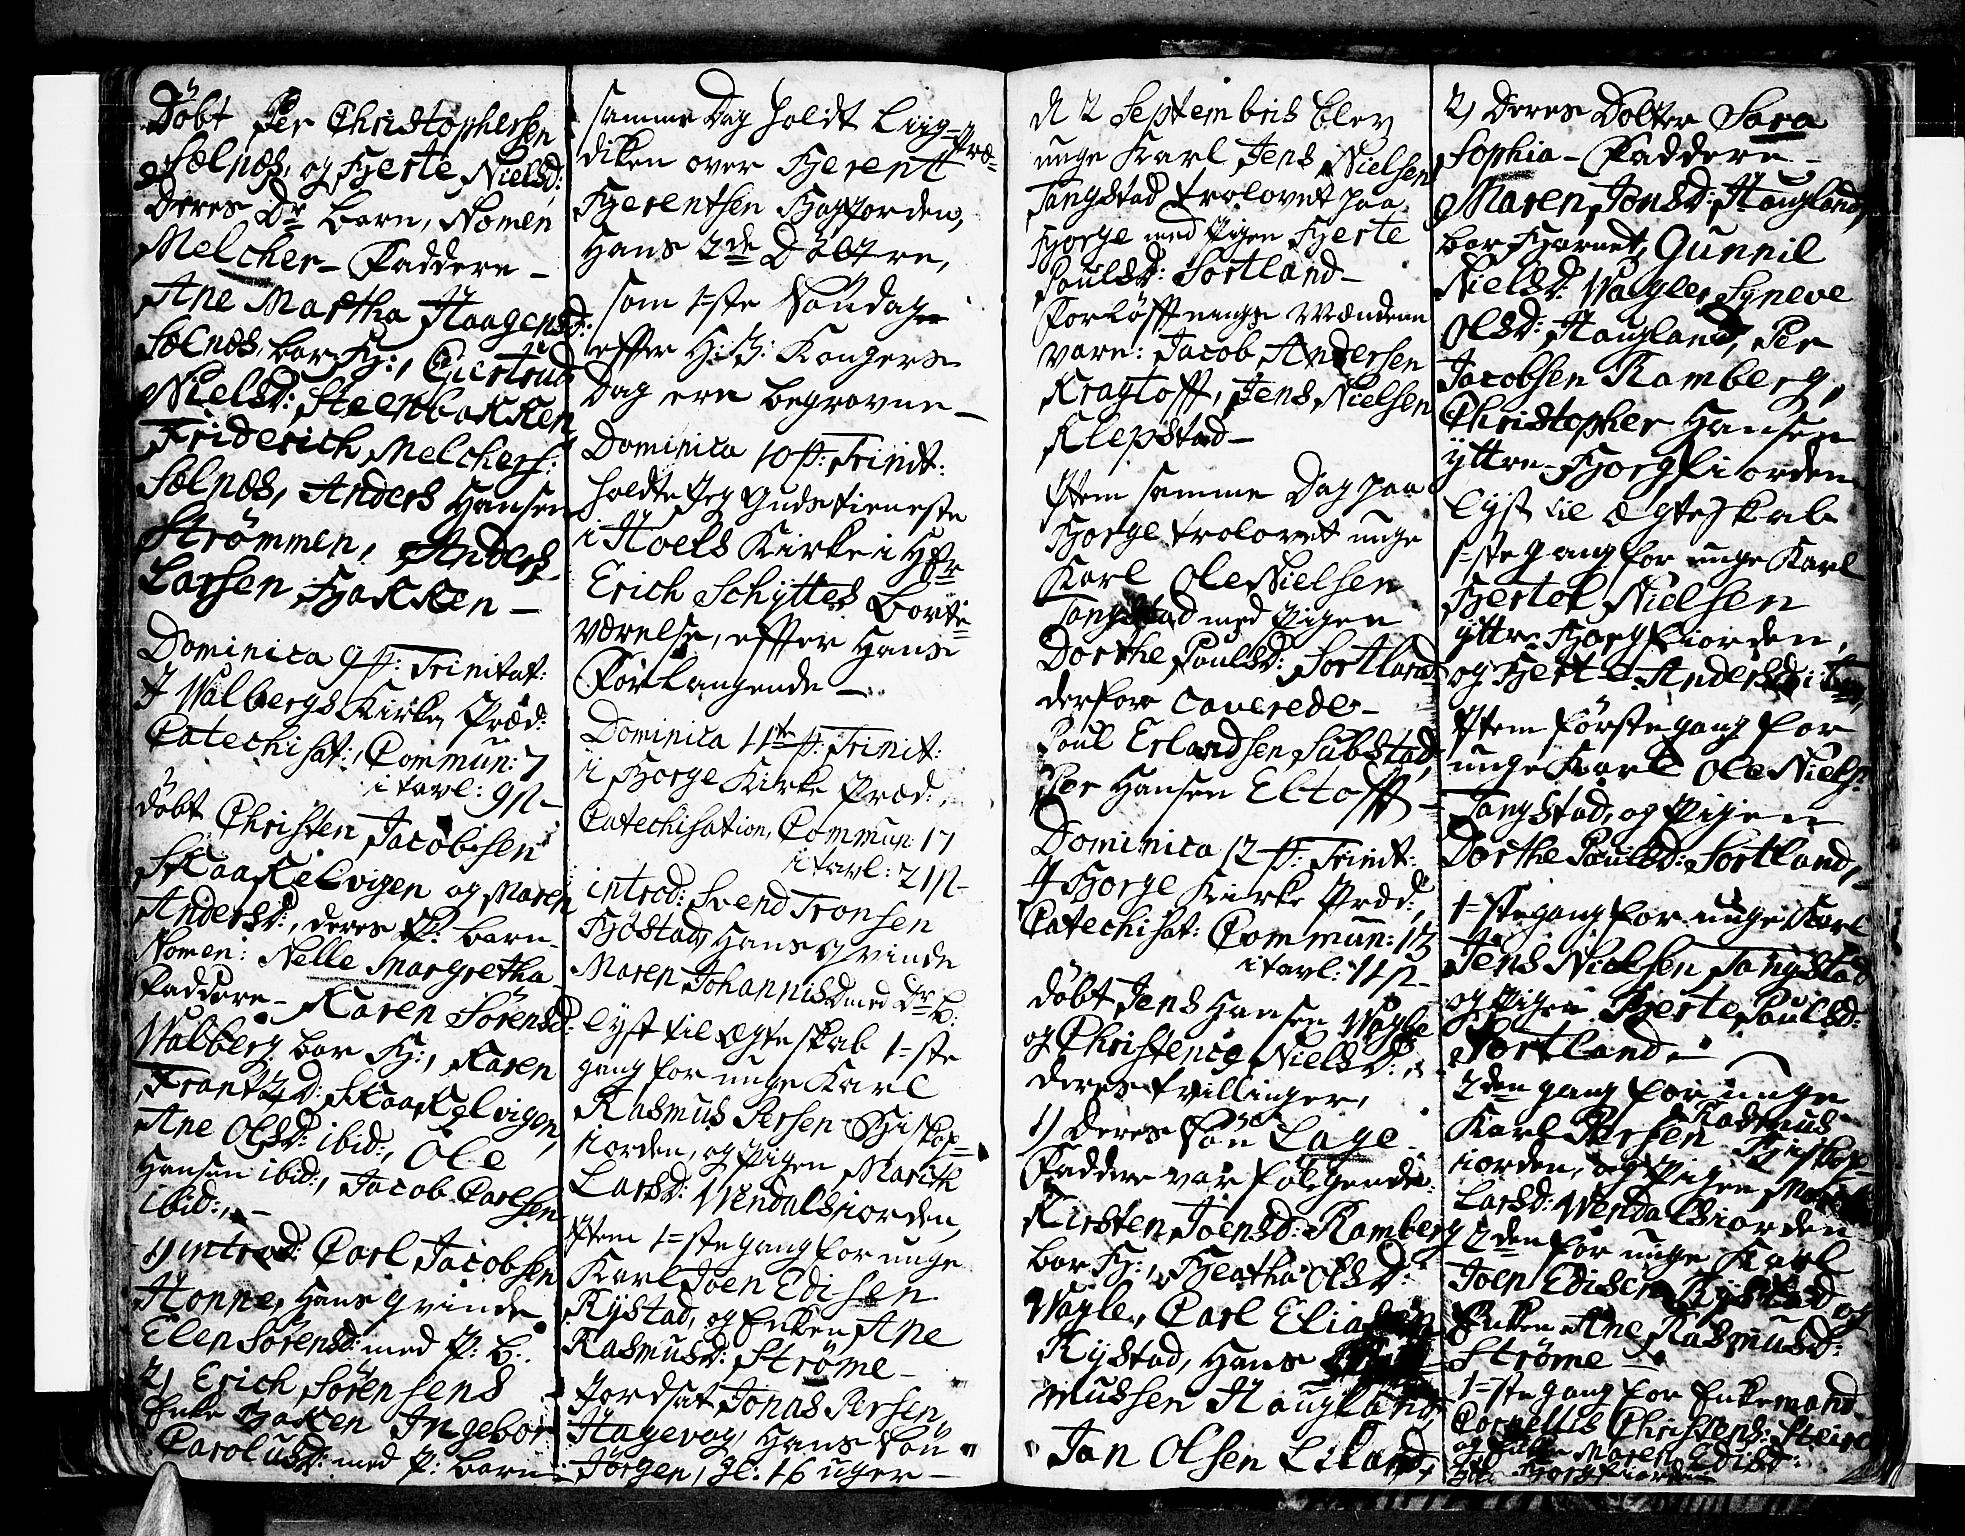 Döbt Per Christophersen
Solnæs, og Hjerte Nielsd:
Deres Dr barn, Nomen
Melcher – Faddere –
Ane Martha Haagensd:
Solnæs, bar Hj:, Giertrud
Nielsd: Steenbakken
Friderich Melchers:
Solnæs, Anders Hansen
Strömmen, Anders
Larsen Hjakken –
Dominica 9 p: Trinitat:
I Walbergs Kirke Præd:
Catechisat:, Commun: 7
i tavl: 9 –
döbt Christen Jacobsen
Skaakelvigen og Maren
Andersd:, deres P: barn
Nomen: Nelle Margretha
Faddere – Karen Sörensd:
Walberg bar Hj:, Karen
Frantzd: Skaakelvigen,
Ane Olsd: ibid:, Ole
Hansen ibid:, Jacob Carlsen
ibid:, –
1) introd: Carl Jacobsen
Honne, Hans qvinde
Elen Sörensd: med P: b:
2) Erich Sörensens
Enke Hjakken Ingebor
Carolusd: med P: barn
samme Dag holdt Liig-Præ-
diken over Hjerent
Hjerentsen
Hans 2de Döbtre,
som 1-ste Söndag
effter Kongers
Dag ere begravne –
Dominica 10 p: Trinit:
holdte Jeg Gudstieneste
i Hoels Kirke i Hr
Erich Schyttes Borte-
værelse, effter Hans
Forlangende –
Dominica 11te p: Trinit:
i Borge Kirke Præd:,
Catechisation, Commun: 17
i tavl: 21 –
introd: Svend Tronsen
Hans qvinde
Maren Johannisd: med Dr b:
Lyst til Ægteskab 1-ste
gang for unge Karl
Rasmus Persen
iorden, og Pigen Marith
Larsd: Wendalsiorden,
Item 1-ste gang for unge
Karl Joen Edisen
Rystad, og Enken Ane
Rasmusd: Ströme –
Jordsat Jonas Persen
Hagevog, Hans Sön
Jörgen, gl: 16 uger –
d 2 Septembris blev
unge Karl Jens Nielsen
Tangstad trolovet paa
Borge med Pigen Hjerte
Poulsd: Sortland –
Forlöfftnings Mændene
vare: Jacob Andersen
Kragtoff, Jens Nielsen
Klepstad –
Item samme Dag paa
Borge trolovet unge
Karl Ole Nielsen
Tangstad med Pigen
Dorthe Poulsd: Sortland
derfore caverede –
Poul Erlandsen Substad,
Per Hansen Eltofft –
Dominica 12 p: Trinit:
I Borge Kirke Præd:,
Catechisat: Commun: 13
i tavl: 11 –
döbt Jens Hansen Wagle
og Christence Nielsd:,
deres tvillinger,
1) deres Sön Lage
Faddere var fölgende:
Kirsten Joensd: Ramberg
bar Hj:, Olsd:
Wagle, Carl
Rystad, Hans
mussen Haugland,
Jan Olsen Liland,
2) Deres Dotter Sara
Sophia – Faddere –
Maren Jonsd: Haugland,
bar barnet, Gunnil
Nielsd: Wagle, Syneve
Olsd: Haugland, Per
Jacobsen Ramberg,
Christopher Hansen
yttre Borgfiorden
Lyst til Ægteskab
1-ste gang for unge Karl
Nielsen
yttre Borgfiorden,
og Andersd:
Item förste gang for
unge Karl Ole Niels:
Tangstad, og Pigen
Dorthe Poulsd: Sortland,
1-ste gang for unge Karl
Jens Nielsen Tangstad
og Pigen Hjerte Poulsd:
Sortland –
2den gang for unge
Karl Rasmus Persen
iorden, og Pigen Marith
Larsd: Wendalsiorden
2den for unge Karl
Joen Edisen Rystad og
Enken Ane Rasmusd:
Ströme –
1-ste gang for Enkemand
Cornellis Christens: Steiro
og Maren Edisd: